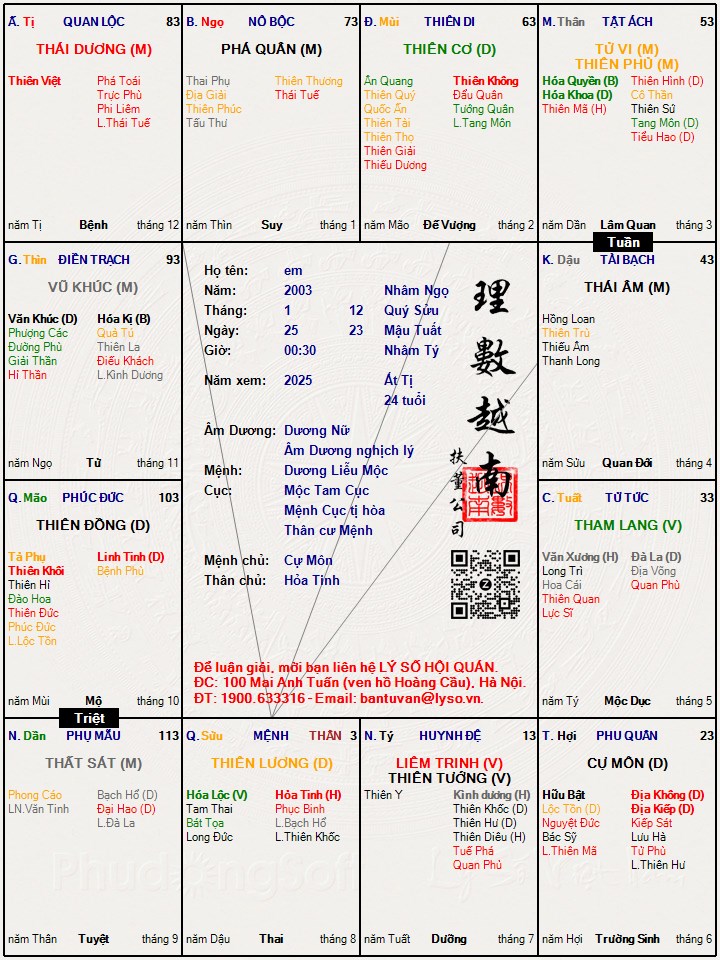 Ấ. Tị QUAN LỘC 83
THÁI DƯƠNG (M)
Thiên Việt Phá Toái
Trực Phù
Phi Liêm
L.Thái Tuế
năm Tị Bệnh tháng 12
B. Ngọ NÔ BỘC 73
PHÁ QUÂN (M)
Thai Phụ Thiên Thương
Địa Giải Thái Tuế
Thiên Phúc
Tấu Thư
năm Thìn Suy tháng 1
Đ. Mùi THIÊN DI 63
THIÊN CƠ (D)
Ân Quang Thiên Không
Thiên Quý Đẩu Quân
Quốc Ấn Tướng Quân
Thiên Tài L.Tang Môn
Thiên Thọ
Thiên Giải
Thiếu Dương
năm Mão Đế Vượng tháng 2
M. Thân TẬT ÁCH 53
TỬ VI (M)
THIÊN PHỦ (M)
Hóa Quyền (B) Thiên Hình (D)
Hóa Khoa (D) Cô Thần
Thiên Mã (H) Thiên Sứ
Tang Môn (D)
Tiểu Hao (D)
năm Dần Lâm Quan tháng 3
Tuần
G. Thìn ĐIỀN TRẠCH 93
VŨ KHÚC (M)
Văn Khúc (D) Hóa Kị (B)
Phượng Các Quả Tú
Đường Phù Thiên La
Giải Thần Điếu Khách
Hỉ Thần L.Kình Dương
năm Ngọ Tử tháng 11
Họ tên: em
Năm: 2003 Nhâm Ngọ
Tháng: 1 12 Quý Sửu
Ngày: 25 23 Mậu Tuất
Giờ: 00:30 Nhâm Tý
Năm xem: 2025 Ất Tị
24 tuổi
Âm Dương: Dương Nữ
Âm Dương nghịch lý
Mệnh: Dương Liễu Mộc
Cục: Mộc Tam Cục
Mệnh Cục tị hòa
Thân cư Mệnh
Mệnh chủ: Cự Môn
Thân chủ: Hỏa Tinh
理數越南
扶董公司
Để luận giải, mời bạn liên hệ LÝ SỐ HỘI QUÁN.
ĐC: 100 Mai Anh Tuấn (ven hồ Hoàng Cầu), Hà Nội.
ĐT: 1900.633316 - Email: bantuvan@lyso.vn.
K. Dậu TÀI BẠCH 43
THÁI ÂM (M)
Hồng Loan
Thiên Trù
Thiếu Âm
Thanh Long
năm Sửu Quan Đới tháng 4
Q. Mão PHÚC ĐỨC 103
THIÊN ĐỒNG (D)
Tả Phụ Linh Tinh (D)
Thiên Khôi Bệnh Phù
Thiên Hỉ
Đào Hoa
Thiên Đức
Phúc Đức
L.Lộc Tồn
năm Mùi Mộ tháng 10
Triệt
C. Tuất TỬ TỨC 33
THAM LANG (V)
Văn Xương (H) Đà La (D)
Long Trì Địa Võng
Hoa Cái Quan Phù
Thiên Quan
Lực Sĩ
năm Tý Mộc Dục tháng 5
N. Dần PHỤ MẪU 113
THẤT SÁT (M)
Phong Cáo Bạch Hổ (D)
LN.Văn Tinh Đại Hao (D)
L.Đà La
năm Thân Tuyệt tháng 9
Q. Sửu MỆNH THÂN 3
THIÊN LƯƠNG (D)
Hóa Lộc (V) Hỏa Tinh (H)
Tam Thai Phục Binh
Bát Tọa L.Bạch Hổ
Long Đức L.Thiên Khốc
năm Dậu Thai tháng 8
N. Tý HUYNH ĐỆ 13
LIÊM TRINH (V)
THIÊN TƯỚNG (V)
Thiên Y Kình dương (H)
Thiên Khốc (D)
Thiên Hư (D)
Thiên Diêu (H)
Tuế Phá
Quan Phủ
năm Tuất Dưỡng tháng 7
T. Hợi PHU QUÂN 23
CỰ MÔN (D)
Hữu Bật Địa Không (D)
Lộc Tồn (D) Địa Kiếp (D)
Nguyệt Đức Kiếp Sát
Bác Sỹ Lưu Hà
L.Thiên Mã Tử Phù
L.Thiên Hư
năm Hợi Trường Sinh tháng 6